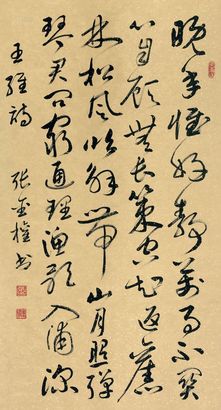 晚年惟好靜萬事不關
心自顧無長策空知返舊
林松風吹解帶山月照彈
琴君問窮通理漁歌入浦深
王維詩 張 權書